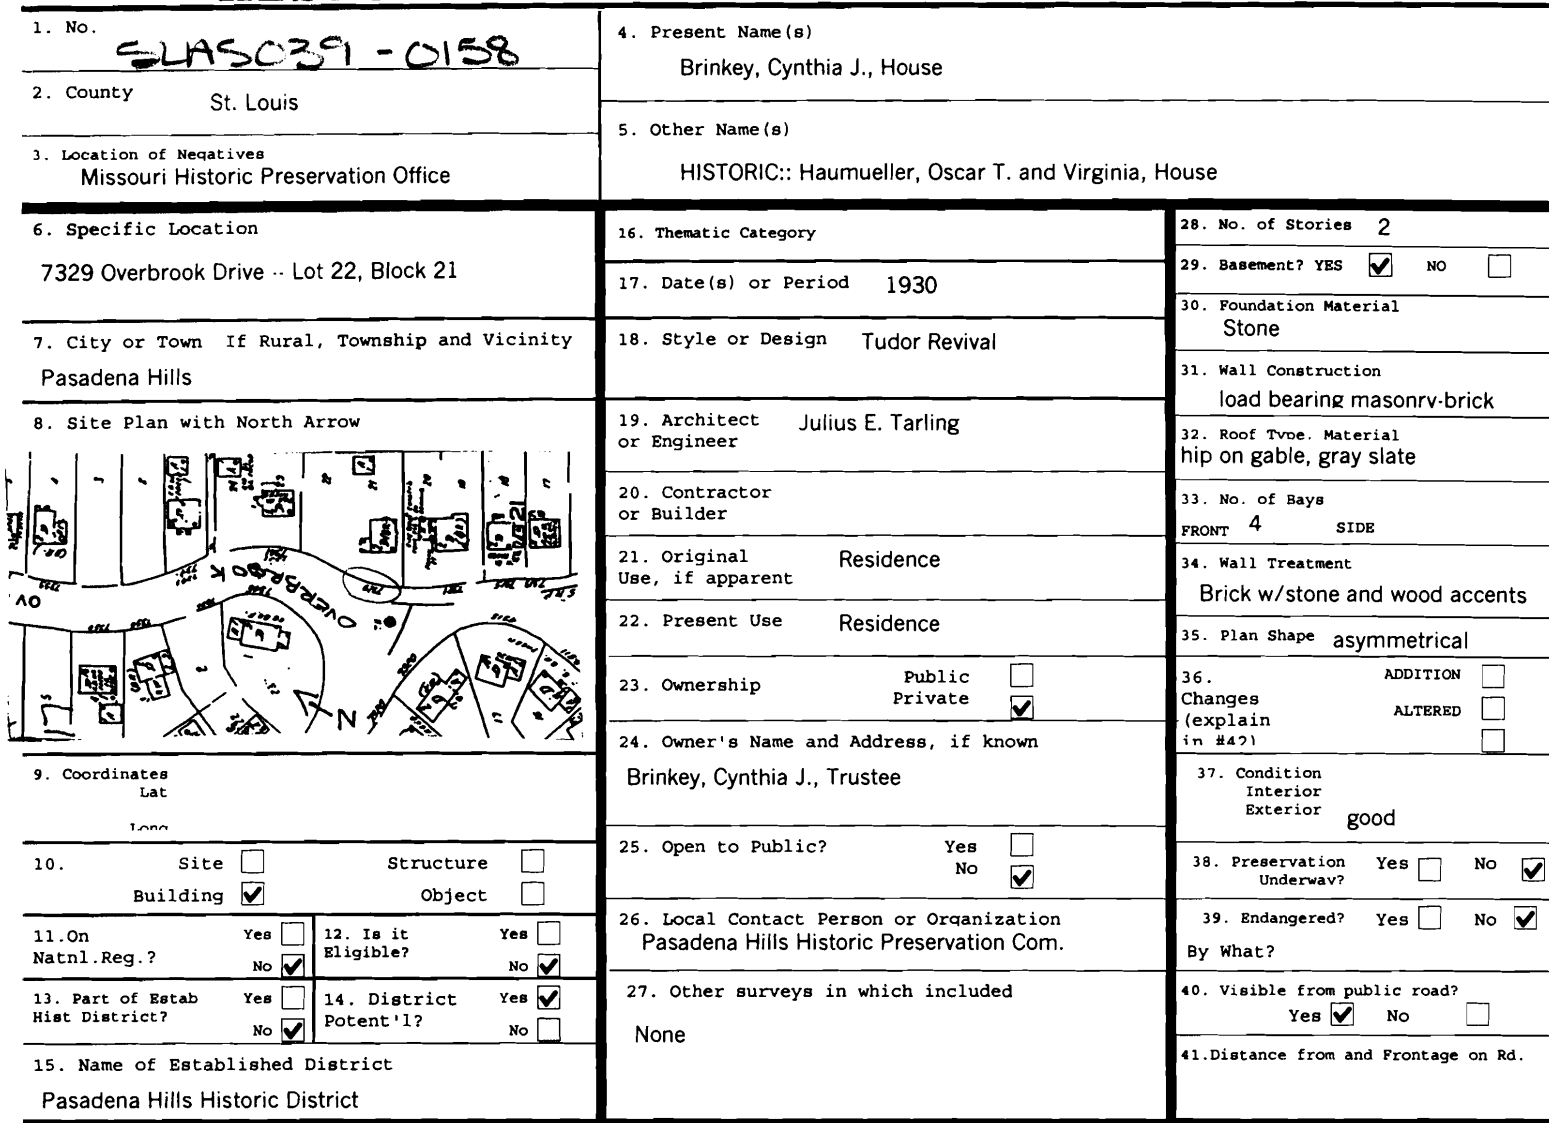 1. No.
SLAS039-0158
2. County
St. Louis
3. Location of Negatives
Missouri Historic Preservation Office
4. Present Name(s)
Brinkey, Cynthia J., House
5. Other Name(s)
HISTORIC:: Haumueller, Oscar T. and Virginia, House
6. Specific Location
7329 Overbrook Drive -- Lot 22, Block 21
7. City or Town If Rural, Township and Vicinity
Pasadena Hills
8. Site Plan with North Arrow
OVERBROOK
N
9. Coordinates
Lat
Long
10. Site
Structure
Building ✔
Object
11.On Yes
Natnl.Reg.? No ✔
12. Is it Yes
Eligible? No ✔
13. Part of Estab Yes
Hist District? No ✔
14. District Yes ✔
Potent'l? No
15. Name of Established District
Pasadena Hills Historic District
16. Thematic Category
17. Date(s) or Period 1930
18. Style or Design Tudor Revival
19. Architect Julius E. Tarling
or Engineer
20. Contractor
or Builder
21. Original Residence
Use, if apparent
22. Present Use Residence
23. Ownership Public
Private ✔
24. Owner's Name and Address, if known
Brinkey, Cynthia J., Trustee
25. Open to Public? Yes
No ✔
26. Local Contact Person or Organization
Pasadena Hills Historic Preservation Com.
27. Other surveys in which included
None
28. No. of Stories 2
29. Basement? YES ✔ NO
30. Foundation Material
Stone
31. Wall Construction
load bearing masonry-brick
32. Roof Type, Material
hip on gable, gray slate
33. No. of Bays
FRONT 4 SIDE
34. Wall Treatment
Brick w/stone and wood accents
35. Plan Shape asymmetrical
36. ADDITION
Changes ALTERED
(explain
in #42)
37. Condition
Interior
Exterior good
38. Preservation Yes No ✔
Underway?
39. Endangered? Yes No ✔
By What?
40. Visible from public road?
Yes ✔ No
41.Distance from and Frontage on Rd.